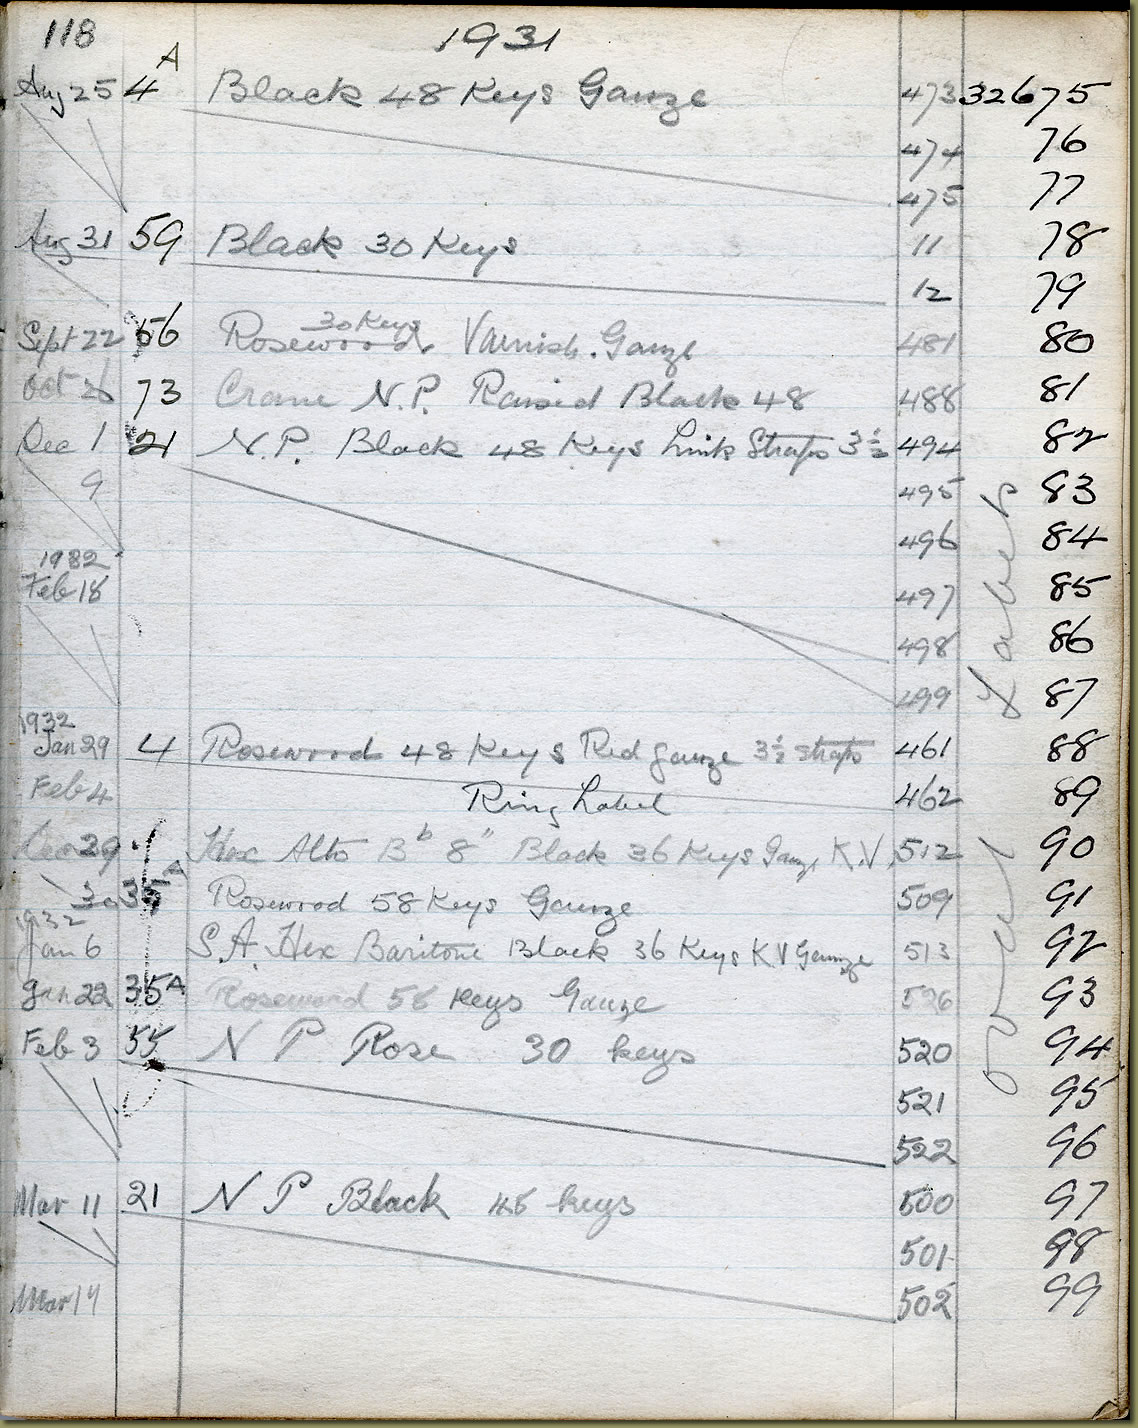 118 1931
A
Aug 25 4 Black 48 Keys Gauze 473 32675
474 76
475 77
Aug 31 59 Black 30 Keys 11 78
12 79
30 Keys
Sept 22 56 Rosewood Varnish. Gauze 481 80
Oct 73 Crane N.P. Raised Black 48 488 81
Dec 1 21 N.P. Black 48 Keys Link Straps 3½ 494 82
9 495 83
496 84
1932
Feb 18 497 85
498 86
499 87
Labels
1932
Jan 29 4 Rosewood 48 Keys Red gauze 3½ straps 461 88
Feb 4 Ring Label 462 89
Dec 29 Hex Alto Bb 8" Black 36 Keys Gauze K.V. 512 90
30 35A Rosewood 58 Keys Gauze 509 91
1932
Jan 6 S.A. Hex Baritone Black 36 Keys K V Gauze 513 92
Jan 22 35A Rosewood 58 Keys Gauze 526 93
Feb 3 55 N P Rose 30 keys 520 94
oval
521 95
522 96
Mar 11 21 N P Black 48 keys 500 97
501 98
Mar 14 502 99